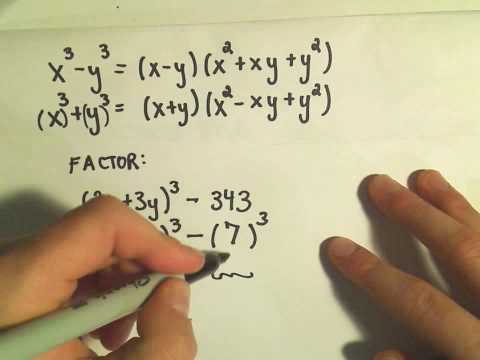 x³ - y³ = (x-y)(x² + xy + y²)
(x)³ + (y)³ = (x+y)(x² - xy + y²)
FACTOR:
+3y)³ - 343
)³ - (7)³